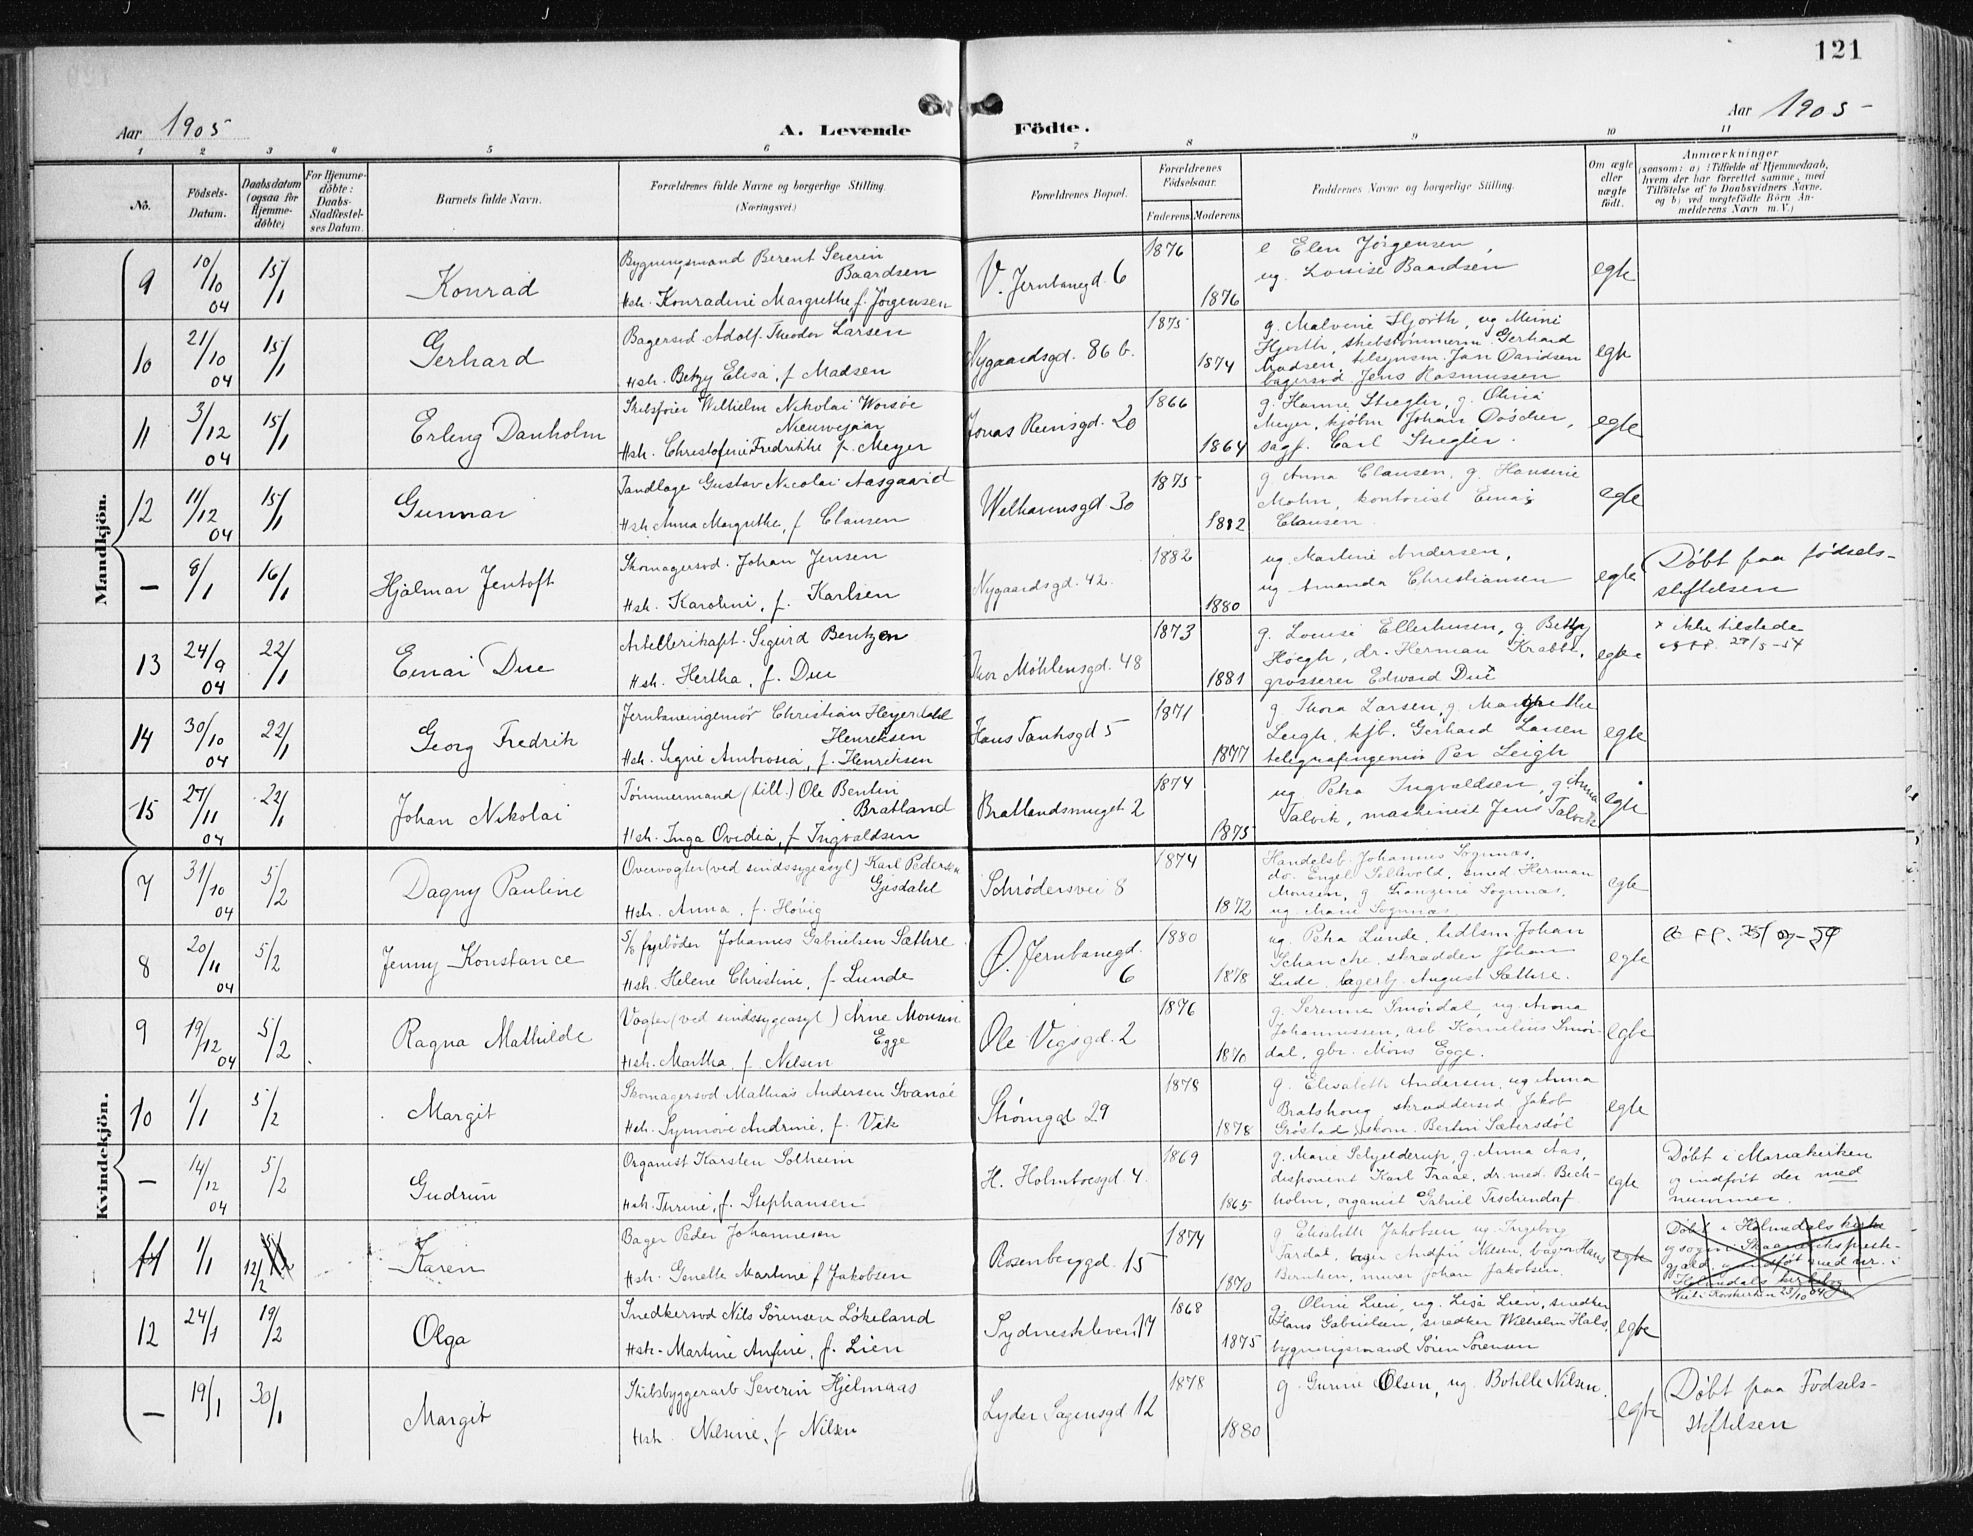 121
Aar 1905
A. Levende Födte.
Aar 1905
1 2 3 4 5 6 7 8 9 10 11
No.
Födsels-Datum.
Daabsdatum (ogsaa for Hjemme-döbte)
For Hjemme-döbte: Daabs-Stadfæstelses Datum.
Barnets fulde Navn.
Forældrenes fulde Navne og borgerlige Stilling.
(Næringsvei.)
Forældrenes Bopæl.
Forældrenes Födselsaar.
Faderens Moderens
Faddernes Navne og borgerlige Stilling.
Om ægte eller uægte födt.
Anmærkninger
(saasom: a) i Tilfælde af Hjemmedaab, hvem der har forrettet samme, med Tilföielse af to Daabsvidners Navne. og b) ved uægtefödte Börn Anmelderens Navn m. V.)
Mandkjön.
9 10/10 04 15/1 Konrad
Bygningsmand Berent Severin Baardsen
Hstr. Konradine Margrethe f. Jørgensen
V. Jernbanegd. 6 1876 1876
e Elen Jørgensen,
ug. Louise Baardsen
egte
10 21/10 04 15/1 Gerhard
Bagersvd Adolf Theodor Larsen
Hstr. Betzy Elisa, f Madsen
Nygaardsgd. 86 b. 1875 1874
g. Malvine Hjorth, ug Mimi
Hjorth, skibstømmerm. Gerhard
Madsen, tilsynsm. Jan Davidsen
bagersvd Jens Rasmussen
egte
11 3/12 04 15/1 Erling Danholm
Wilhelm Nikolai Worsøe
Nieuwejaar
Hstr. Christofine Fredrikke f. Meyer
Jonas Reinsgd. 20 1866 1864
g. Hanne Stiegler, g. Olivia
Meyer, kjøbm Johan
sagf. Carl Stiegler.
egte
12 11/12 04 15/1 Gunnar
Tandlæge Gustav Nicolai Aasgaard
Hstr. Anna Margrethe, f Clausen
Welhavensgd 30 1875 1882
g Anna Clausen, g. Hansine
Mohn, kontorist Einar
Clausen.
egte
— 8/1 16/1 Hjalmar Jentoft
Skomagersvd. Johan Jensen
Hstr. Karoline, f. Karlsen
Nygaardsgd. 42. 1882 1880
ug. Martine Andersen,
ug Amanda Christiansen
egte
Døbt paa fødsels-
stiftelsen
13 24/9 04 22/1 Einar Due
Artellerikapt. Sigurd Bentzen
Hstr. Hertha, f. Due
Thor Möhlensgd. 48 1873 1881
g. Louise Ellerhusen, g Betzy
Høegh, dr. Herman Krabbe,
grosserer Edward Due x
egte
x ikke tilstede
14 30/10 04 22/1 Georg Fredrik
Jernbaneingeniør Christian Heyerdahl
Henriksen
Hstr. Signe Ambrosia, f. Henriksen
Hans Tanksgd 5 1871 1877
g. Thora Larsen, g. Margrethe
Leigh, kjb. Gerhard Larsen
telegrafingeniør Per Leigh
egte
15 27/11 04 22/1 Johan Nikolai
Tømmermand (till.) Ole Bentin
Bratland
Hstr. Inga Ovidia, f Ingvaldsen
Bratlandsmuget 2 1874 1875
ug Petra Ingvaldsen, g. Anna
Talvik, maskinist Jens Talvik
egte
Kvindekjön.
7 31/10 04 5/2 Dagny Pauline
Overvogter (ved sindssygeasyl) Karl Pedersen
Gjesdahl
Hstr. Anna, f. Høvig
Schrødersvei 8 1874 1872
Handelsb. Johannes Sognnæs,
do. Engel Sellevold, smed Herman
Monsen, g Sognnæs,
ug. Marie Sognnæs.
egte
8 20/11 04 5/2 Jenny Konstance
S/S fyrbøder Johannes Gabrielsen Sæthre
Hstr. Helene Christine, f. Lunde
Ø. Jernbanegd. 6 1880 1878
ug. Petra Lunde, Johan
Schancke, skrædder Johan
Lude, August Sæthre.
egte
9 19/12 04 5/2 Ragna Mathilde
Vogter (ved sindssygeasyl) Arne Monsen
Egge
Hstr. Martha, f. Nilsen
Ole Vigsgd. 2 1876 1870
g. Serenne Smørdal, ug. Anna
Johannessen, arb Kornelius Smør-
dal, gbr. Mons Egge.
egte
10 1/1 5/2 Margit
Skomagersvd Mathias Andersen Svanøe
Hstr. Synnøve Andrine, f. Vik
Strømgd 29 1878 1878
g. Elisabeth Andersen, ug Anna
Bratshoug skræddersvd Jakob
Grøstad, skom. Bertin Sætersdøl
egte
— 14/12 04 5/2 Gudrun
Organist Karsten Solheim
Hstr. Thrine, f. Stephansen
H. Holmboesgd. 4. 1869 1865
g. Marie Schjelderup, g. Anna Aas,
disponent Karl Traae, dr. med. Bech-
holm, organist Gabriel Tischendorf
egte
Døbt i Mariakirken
og indført der med
nummer.
11 1/1 12/2 Karen
Bager Peder Johannesen
Hstr. Genelle Martine f Jakobsen
Rosenberggd. 15 1874 1870
g. Elisabeth Jakobsen, ug. Ingeborg
Sardal, bager Andfin Nilsen, bager Hans
Berntsen, murer Johan Jakobsen.
egte
Døbt i Holmedals kirke
12 24/1 19/2 Olga
Snedkersvd Nils Sørensen Løkeland
Hstr. Martine Anfine, f. Lien
Sydneskleven 17 1868 1875
g. Oline Lien, ug. Lisa Lien, snedker
Hans Gabrielsen, snedker Wilhelm Hals,
bygningsmand Søren Sørensen
egte
— 19/1 30/1 Margit
Skibsbyggerarb Severin Hjelmaas
Hstr. Nilsine, f Nilsen
Lyder Sagensgd 12 1878 1880
g. Gurine Olsen, ug. Bothille Nilsen.
egte
Døbt paa Fødsels-
stiftelsen